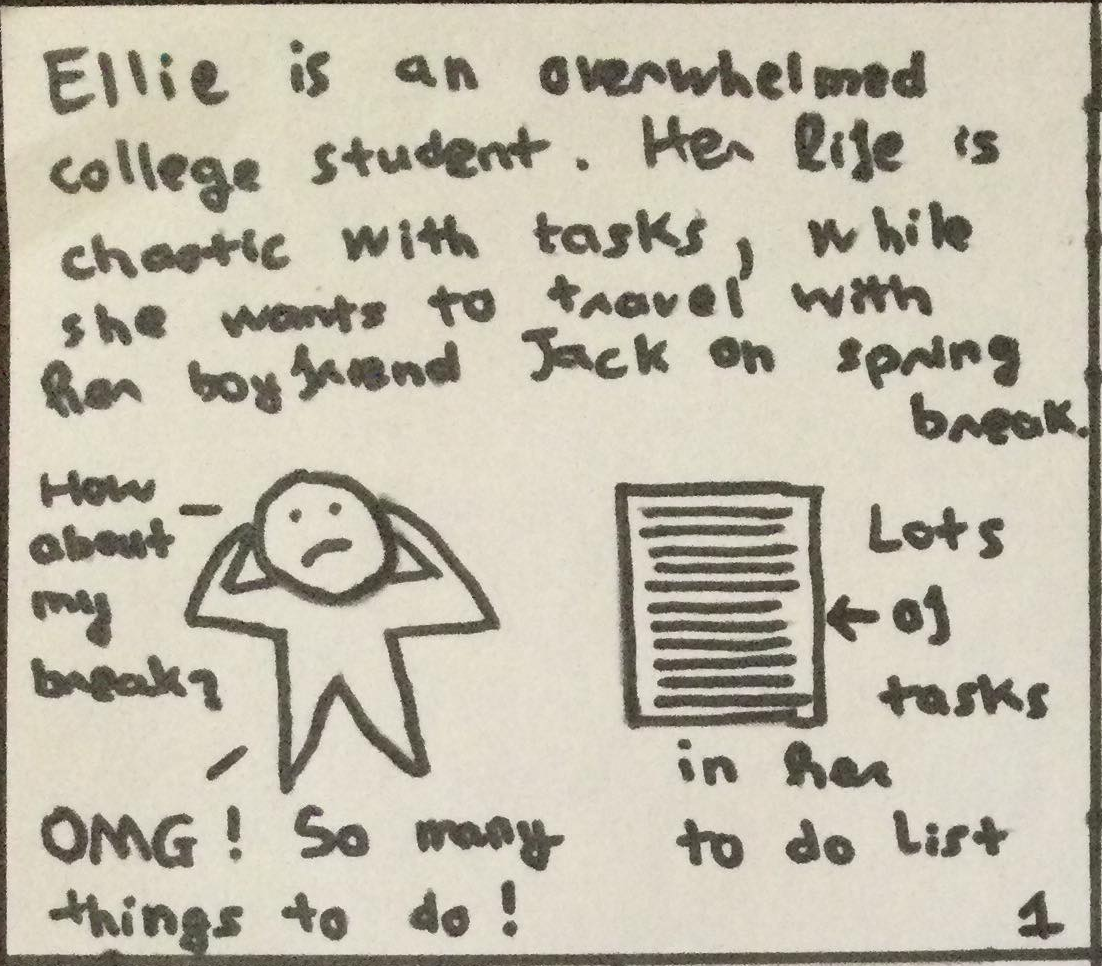 Ellie is an overwhelmed
college student. Her life is
chaotic with tasks, while
she wants to travel with
her boyfriend Jack on spring
break.
How
about
my
break?
OMG! So many
things to do!
Lots
of
tasks
in her
to do list
1